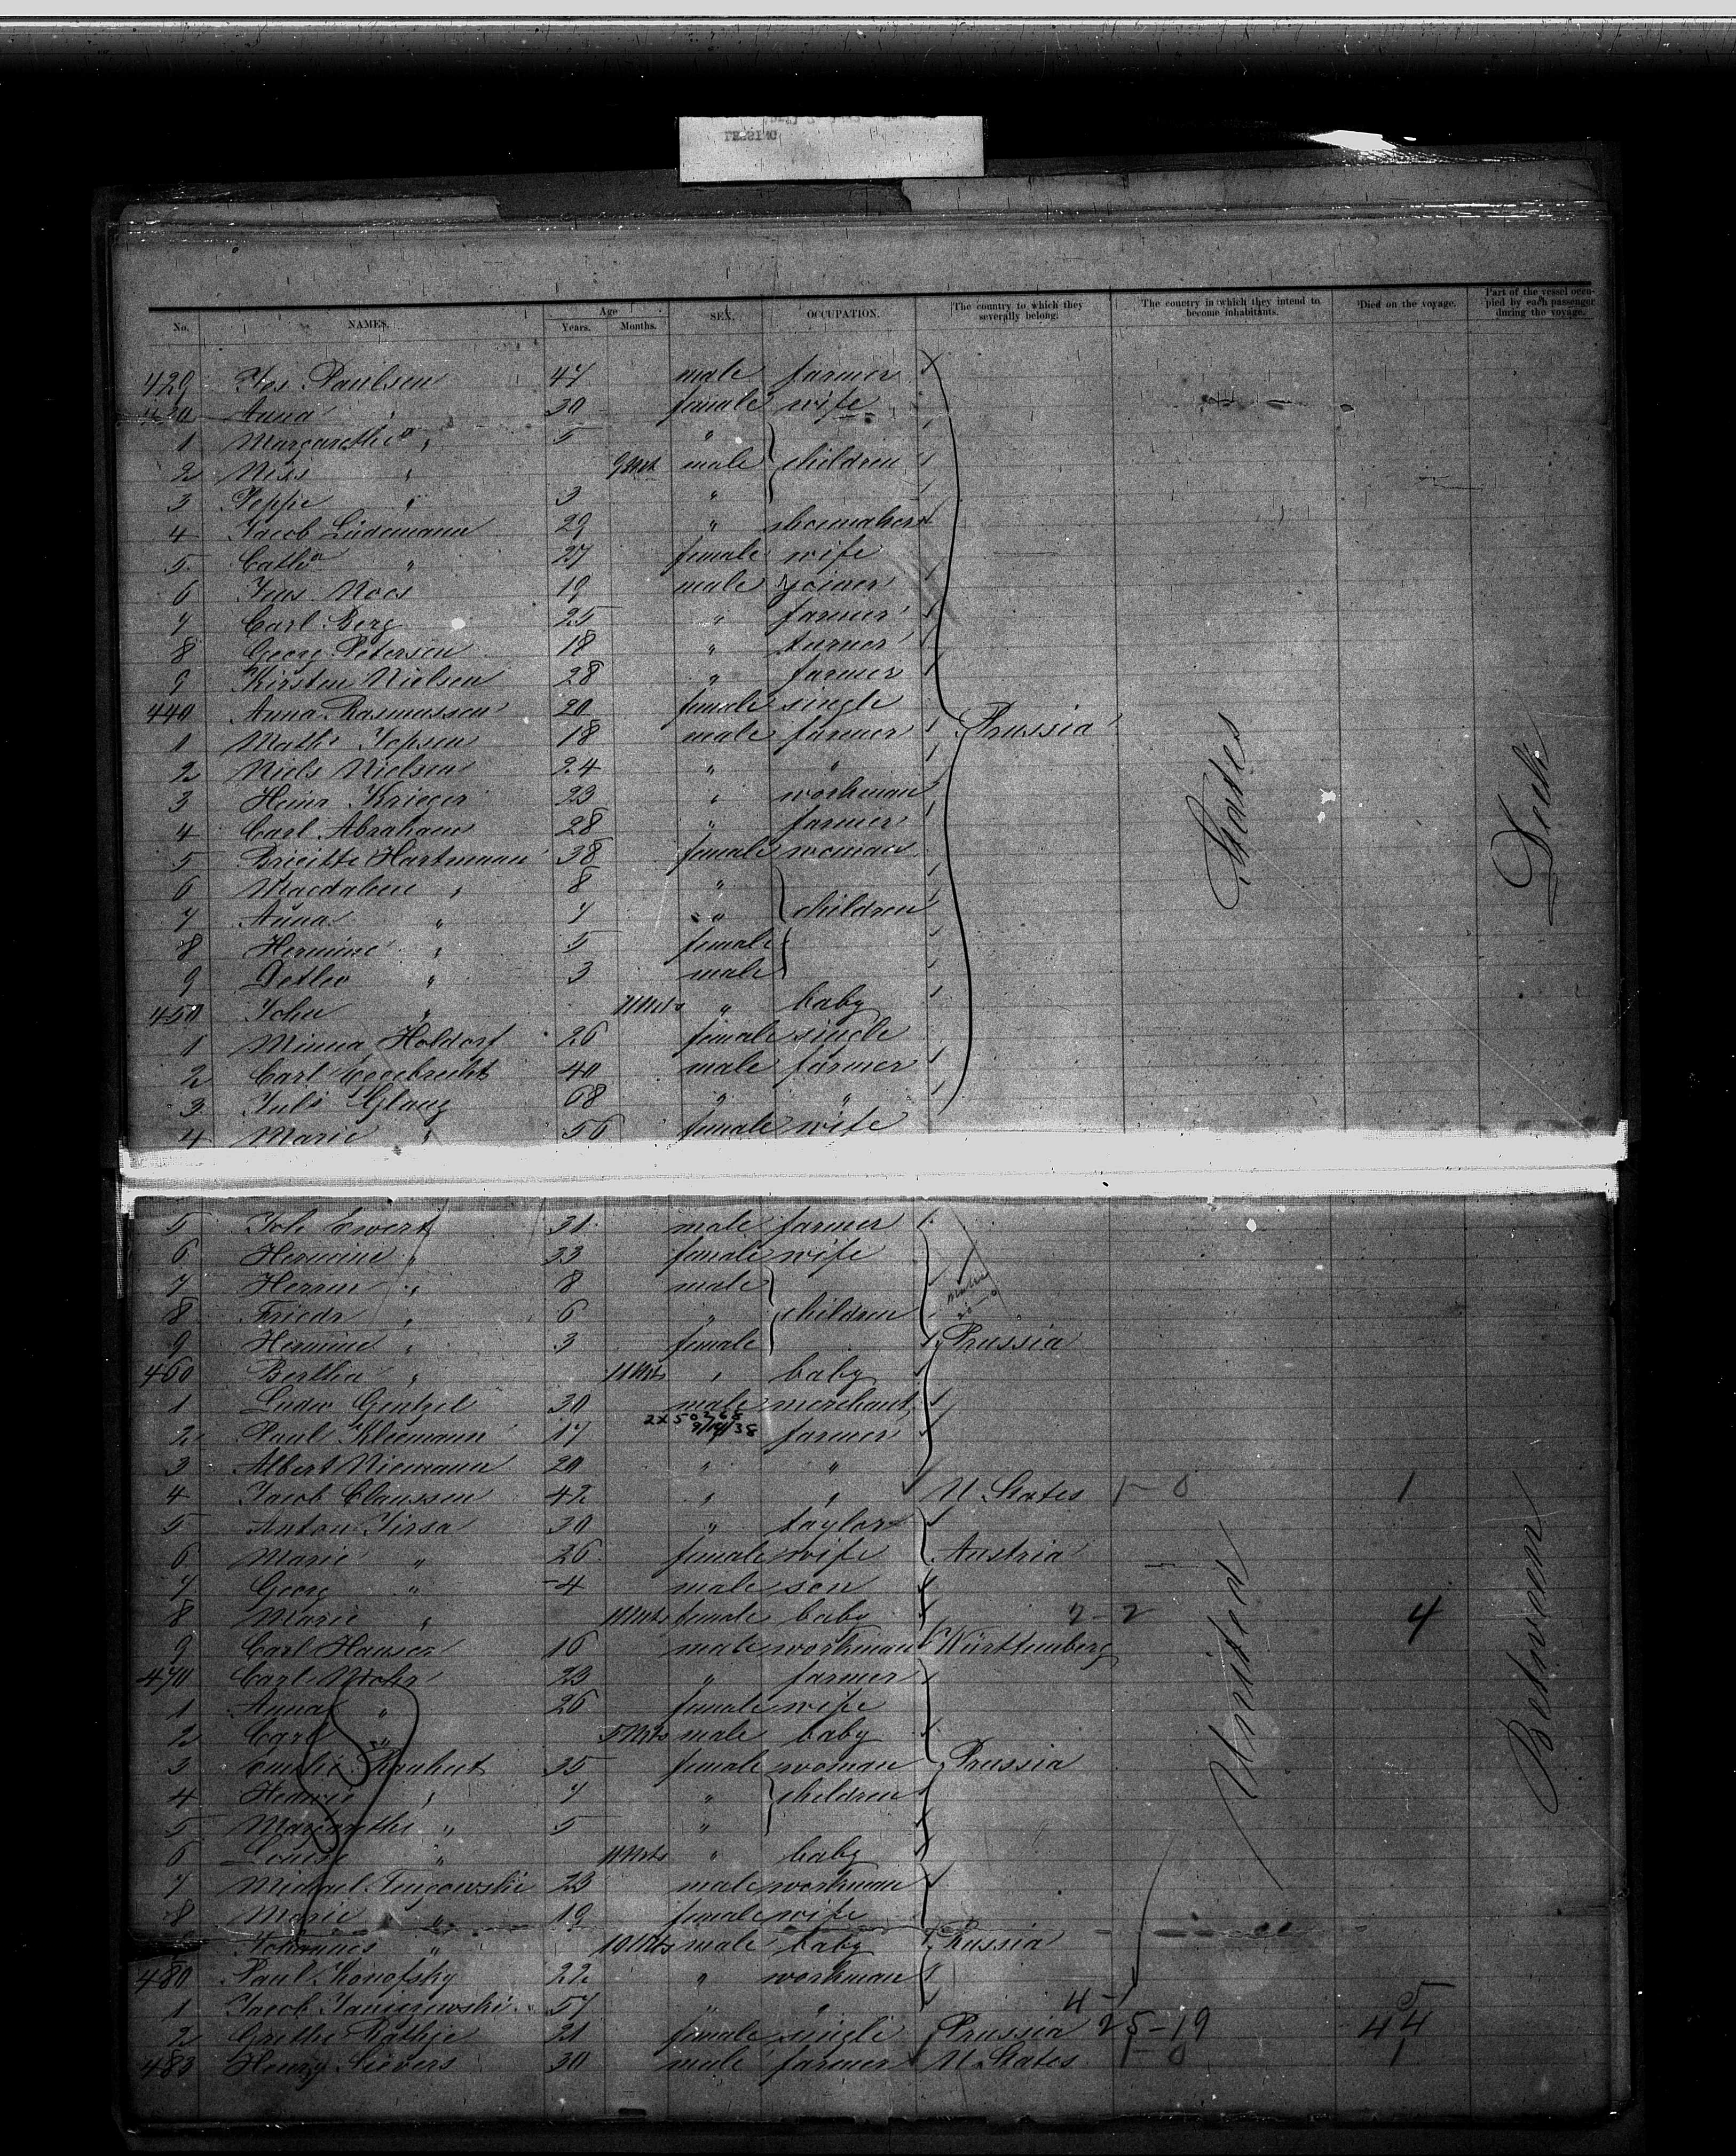 No. NAMES. Age Years. Months. SEX. OCCUPATION. The country to which they severally belong. The country in which they intend to become inhabitants. Died on the voyage. Part of the vessel occupied by each passenger during the voyage.
429 Jes Paulsen 47 male farmer
430 Anna " 30 female wife
1 Margaretha " 5 "
2 Niss " 9 Mts male children
3 Jeppe " 3 "
4 Jacob Lüdemann 29 " shoemaker
5 Catha " 27 female wife
6 Jens Moos 19 male joiner
7 Carl Berg 25 " farmer
8 Georg Petersen 18 " turner
9 Kirsten Nielsen 28 " farmer
440 Anna Rasmussen 20 female single
1 Maths Jepsen 18 male farmer Prussia
2 Niels Nielsen 24 " "
3 Heinr Krieger 23 " workman
4 Carl Abraham 28 " farmer
5 Brigitte Hartmann 38 female woman
6 Magdalene " 8 "
7 Anna " 7 " children
8 Hermine " 5 female
9 Detlev " 3 male
450 John " 11 Mts " baby
1 Minna Holdorf 26 female single
2 Carl Eggebrecht 40 male farmer
3 Juls Glanz 68 " "
4 Marie " 56 female wife
5 Joh Ewert 31 male farmer
6 Hermine " 33 female wife
7 Herrm " 8 male
8 Friedr " 6 " children
9 Hermine " 3 female Prussia
460 Bertha " 11 Mts " baby
1 Ludw Gentzel 30 male merchant
2x 50268
9/19/38
2 Paul Kleemann 17 farmer
3 Albert Niemann 20 " "
4 Jacob Claussen 42 " " U States 1-0 1
5 Anton Jirsa 30 " taylor
6 Marie " 26 female wife Austria
7 Georg " 4 male son
8 Marie " 11 Mts female baby 2-2 4
9 Carl Hauser 16 male workman Württemberg
470 Carl Mohr 23 " farmer
1 Anna " 26 female wife
2 Carl " 5 Mts male baby
3 Emilie Rauhut 35 female woman Prussia
4 Hedwig " 7 " children
5 Margarethe " 5 "
6 Louise " 11 Mts " baby
7 Michael 23 male workman
8 Marie " 19 female wife
Johannes " 10 Mts male baby Russia
480 Paul Konofsky 22 " workman
1 Jacob Janiszewski 57 " " 4-1 5
2 Grethe Rathje 21 female single Prussia 25-19 44
483 Henry Sievers 30 male farmer U. States 1-0 1
United States
Between Deck